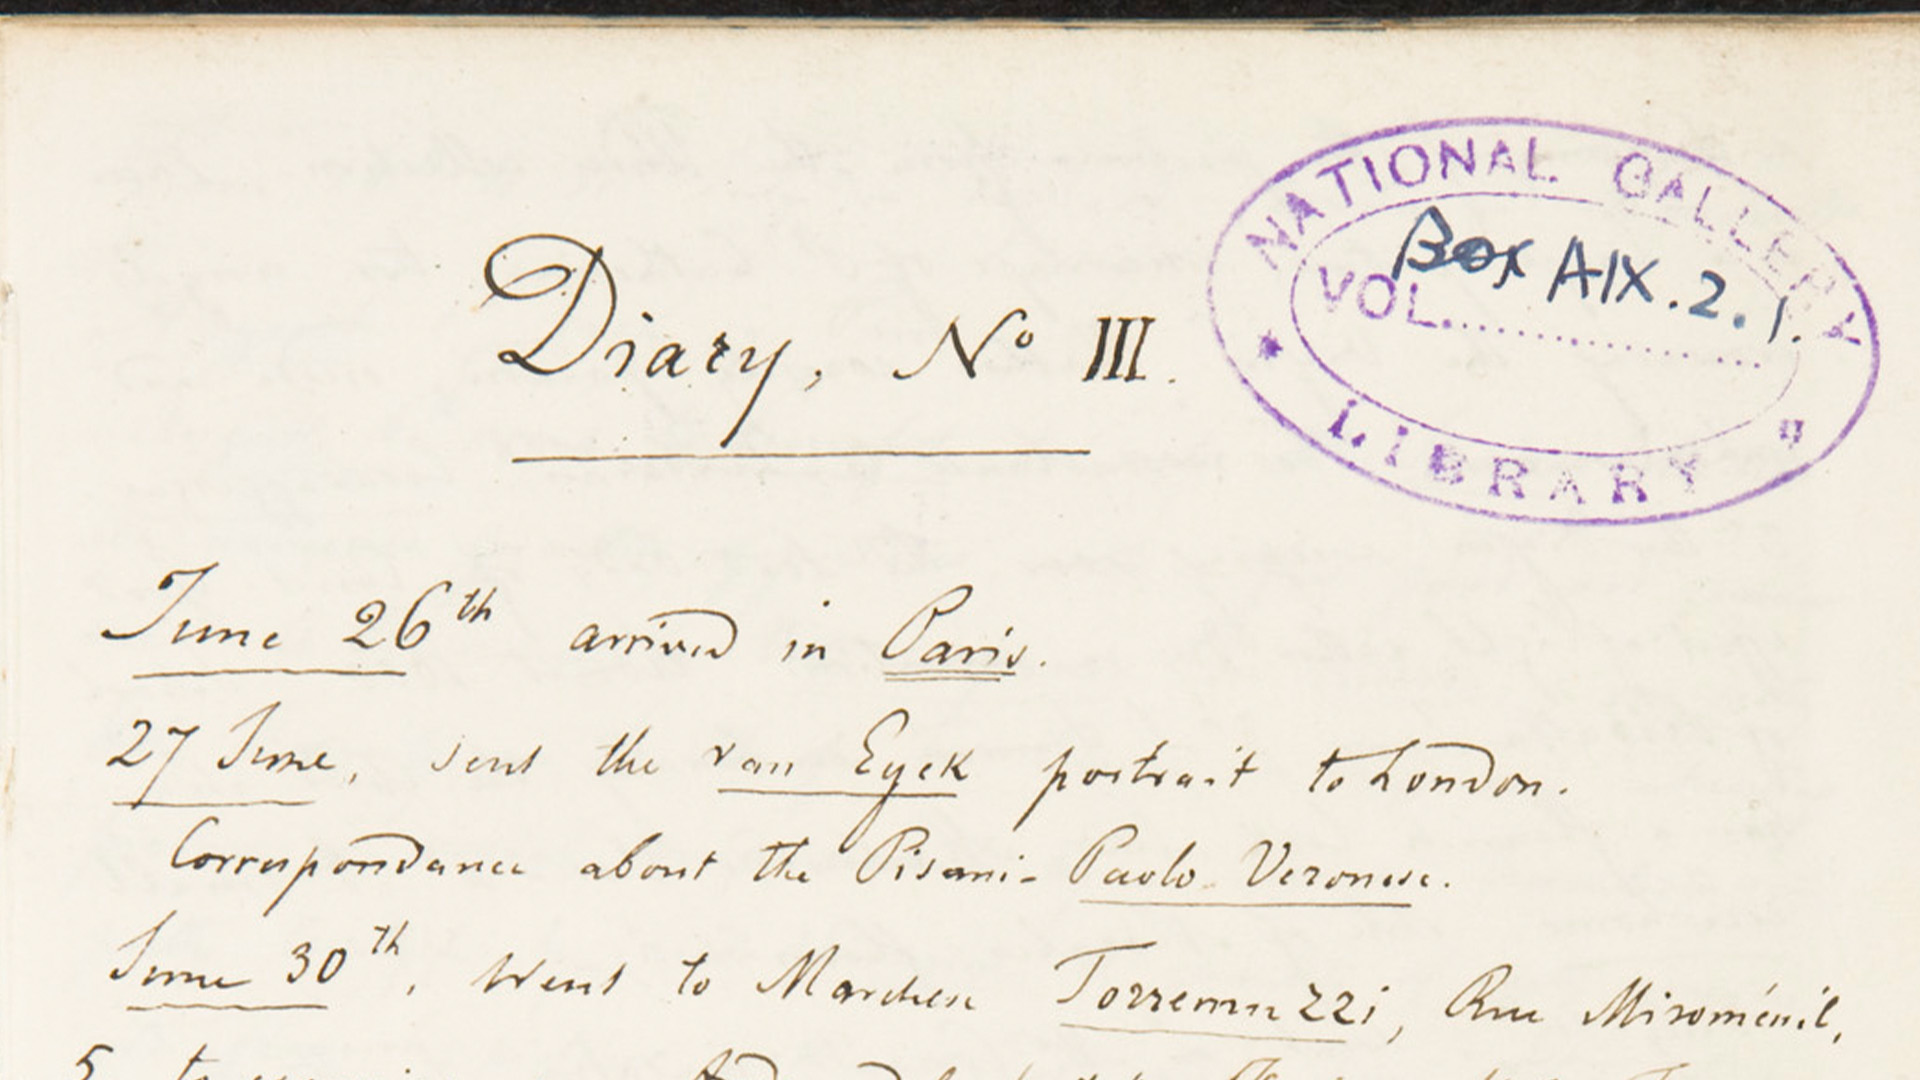 NATIONAL GALLERY
Box AIX.2.1.
VOL..................
LIBRARY
Diary, No III.
June 26th arrived in Paris.
27 June, sent the van Eyck portrait to London.
Correspondance about the Pisani- Paolo Veronese.
June 30th, Went to Marchese Torremuzzi, Rue Miroménil,
5